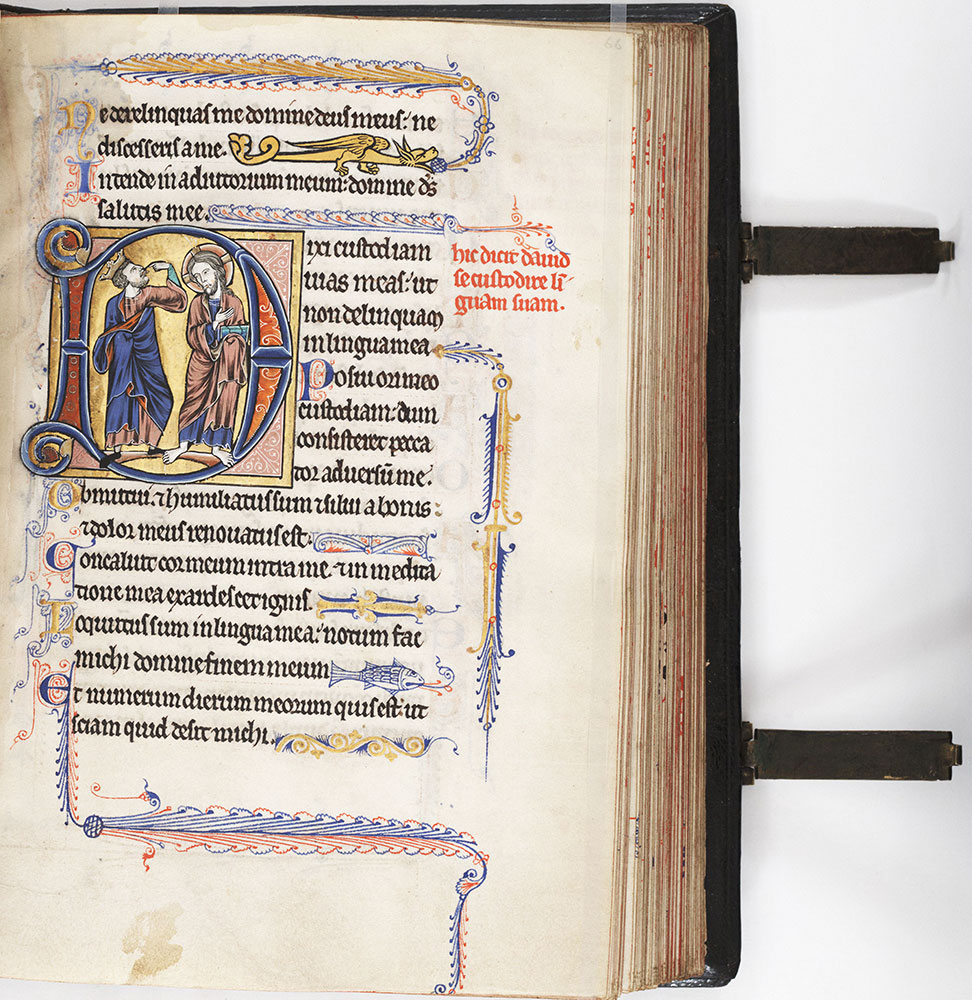 66
Ne derelinquas me domine deus meus: ne
discesseris a me.
Intende in adiutorium meum: domine ds
salutis mee.
Dixi custodiam
uias meas: ut
non delinquam
in lingua mea
Posui ori meo
custodiam: dum
consisteret pecca
tor aduersū me.
Obmutui. ⁊ humiliatus sum ⁊ silui a bonis:
⁊ dolor meus renouatus est.
Concaluit cor meum intra me. ⁊ in medita
tione mea exardescet ignis.
Loquutus sum in lingua mea: notum fac
michi domine finem meum
Et numerum dierum meorum quis est: ut
sciam quid desit michi.
hic dicit dauid
se custodire li-
guam suam.